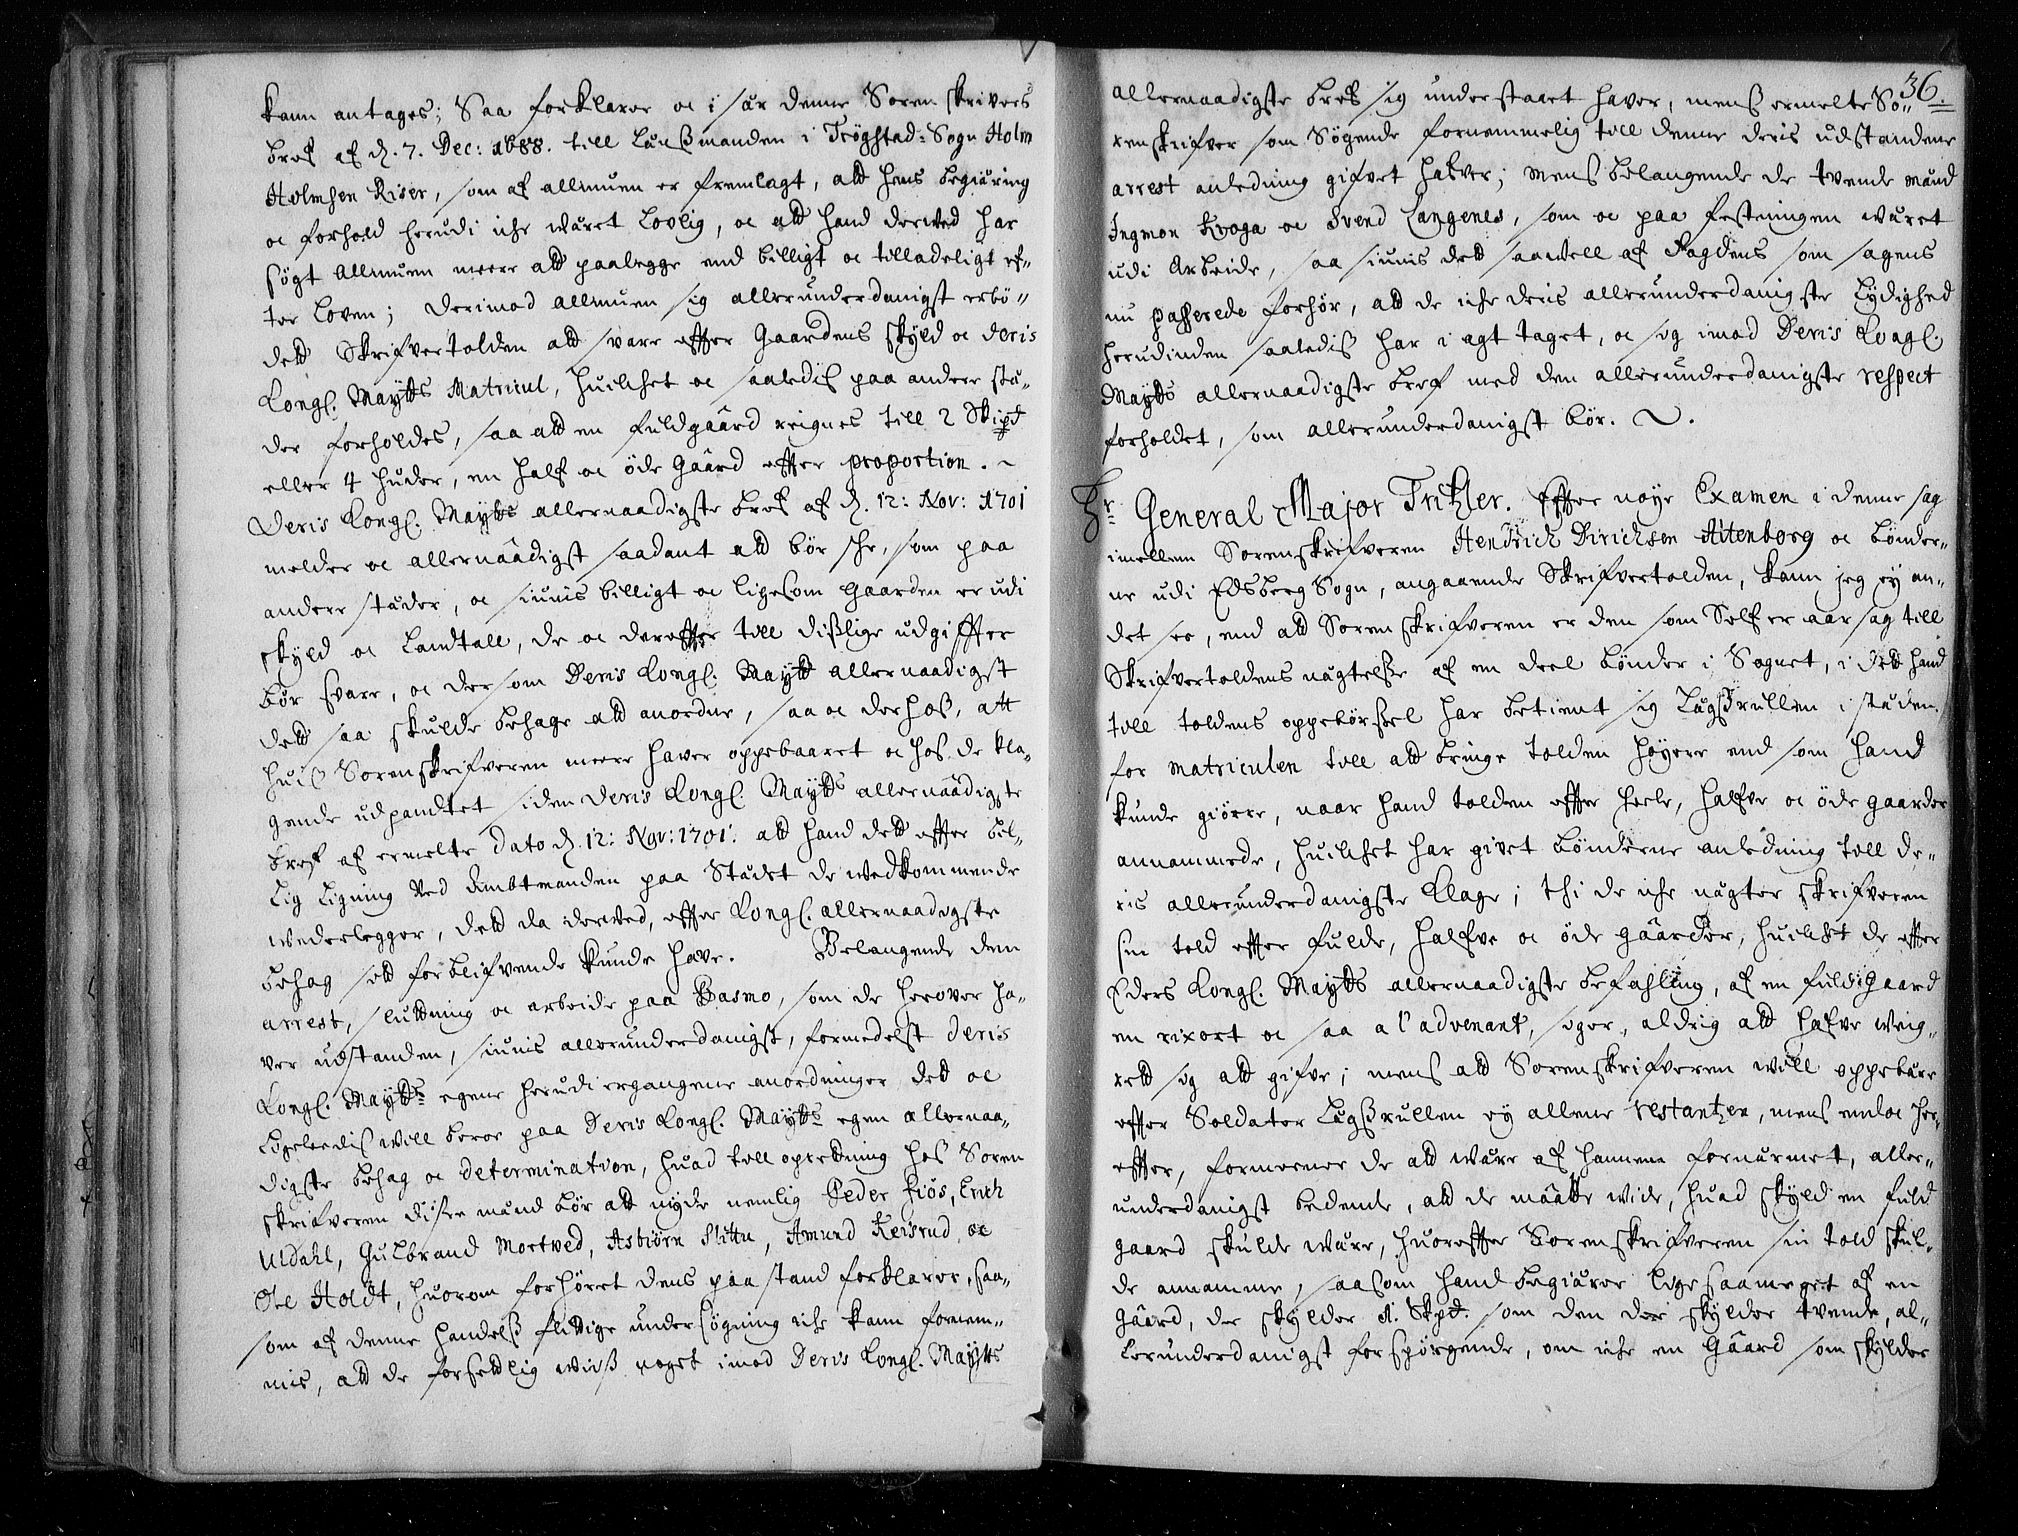 kann antages; Saa forklarer oc i sær denne Soren skrivers
bref af d. 7. Dec: 1688. till Lenßmanden i Trögstad-Sogn Holm
Holmsen Riser, som af allmuen er fremlagt, att hans begiæring
oc forhold herudi iche wæret Lovlig, oc att hand derved har
søgt Allmuen meere att paalegge end billigt oc tilladeligt ef-
ter Loven; Derimod allmuen sig allerunderdanigst erbö-
dett Skrifvertolden att svare effter Gaardens skyld oc Deris
Kongl. Maytts Matricul, huilchet oc saaledis paa andre stæ-
der forholdes, saa att en fuldgaard reignes till 2 Skipd
eller 4 huder, en half oc öde Gaard effter proportion. ~
Deris Kongl. Maytts allernaadigste bref af d. 12: Nov: 1701
melder oc allernaadigst saadant att bör ske, som paa
andre stæder, oc siunis billigt oc ligesom Gaarden er udi
skyld oc Landtall, de oc dereffter till dißlige udgiffter
bør svare, oc dersom Deris Kongl. Maytt allernaadigst
dett saa skulde behage att anordne, saa oc derhoß, att
huiß Sorenskrifveren meere haver oppebaaret oc hos de kla-
gende udpandtet siden Deris Kongl. Maytts allernaadigste
bref af ermelte Dato d. 12: Nov: 1701. att hand dett effter bil-
lig Ligning ved Ambtmanden paa Stædet de wedkommende
wederlegger, dett da derved, effter Kongl. allernaadigste
behag sitt forblifvende kunde have. Belangende den
arrest, slutning oc arbeide paa Basmo, som de herover ha-
ver udstanden, siunis allerunderdanigst, formedelst Deris
Kongl. Maytts egene herudi ergangene anordninger dett oc
Ligeledis will beroe paa Deris Kongl. Maytts egen allernaa-
digste behag oc determination, huad till oprettning hos Soren
skrifveren disse mænd bör att nyde nemlig Peder Fiös, Erich
Uldahl, Gulbrand Mortved, Asbiörn Slittu, Amund Reisrud, oc
Ole Holdt, huorom forhöret dens paastand forklarer, saa-
som af denne handelß flittige undersögning iche kann fornem-
mis, att de forsettlig wiß noget imod Deris Kongl. Maytts
36.
allernaadigste bref sig understaaet haver, menß ermelte So-
renskrifver som Søgende fornemmelig till denne deris udstandene
arrest anledning gifvet hafver; menß belangende de tvende mænd
Ingmon Kroga oc Svend Langenes, som oc paa festningen wæret
udi Arbeide, saa siunis dett saavell af Fogdens som sagens
nu passerede forhør, att de iche deris allerunderdanigste Lydighed
herudinden saaledis har i agt taget, oc sig imod Deris Kongl.
Maytts allernaadigste bref med den allerunderdanigste respect
forholdet, som allerunderdanigst bör.
Hr. General Major Tritzler. Effter nøye Examen i denne sag
imellem Sorenskrifveren Hendrich Dirichsen Altenborg oc bönder-
ne udi Edsberg Sogn, angaaende Skrifvertolden, kann jeg ey an-
det see, end att Sorenskrifveren er den som Self er aarsag till
Skrifvertoldens nægtelsse af en deel bönder i Sognet, i dett hand
till toldens oppebörssel har betient sig Lægßrullen i stæden
for matriculen till att bringe tolden høyere end som hand
kunde giørre, naar hand tolden effter heele, halfve oc öde gaarder
annammede, huilchet har givet bønderne anledning till de-
ris allerunderdanigste Klage; thi de iche nægter skrifveren
sin told effter fulde, halfve oc öde gaarder, huilchet de effter
Eders Kongl. Maytts allernaadigste befahling, af en fuld Gaard
en rixort oc saa a l'advenant, siger, aldrig att hafve weig-
rett sig att gifve; mens att Sorenskrifveren will oppebære
effter Soldater Lægßrullen ey allene restantzen, mens endoc her-
effter, formeener de att være af hannem fornærmet, aller-
underdanigst bedende, att de maatte wide, huad skyld en fuld
gaard skulde være, huoreffter Sorenskrifveren sin told skul-
de annamme, saasom hand begiærer lige saa meget af en
Gaard, der skylder 1. Skpd. som den der skylder tvende, al-
lerunderdanigst forspörgende, om iche en Gaard som skylder